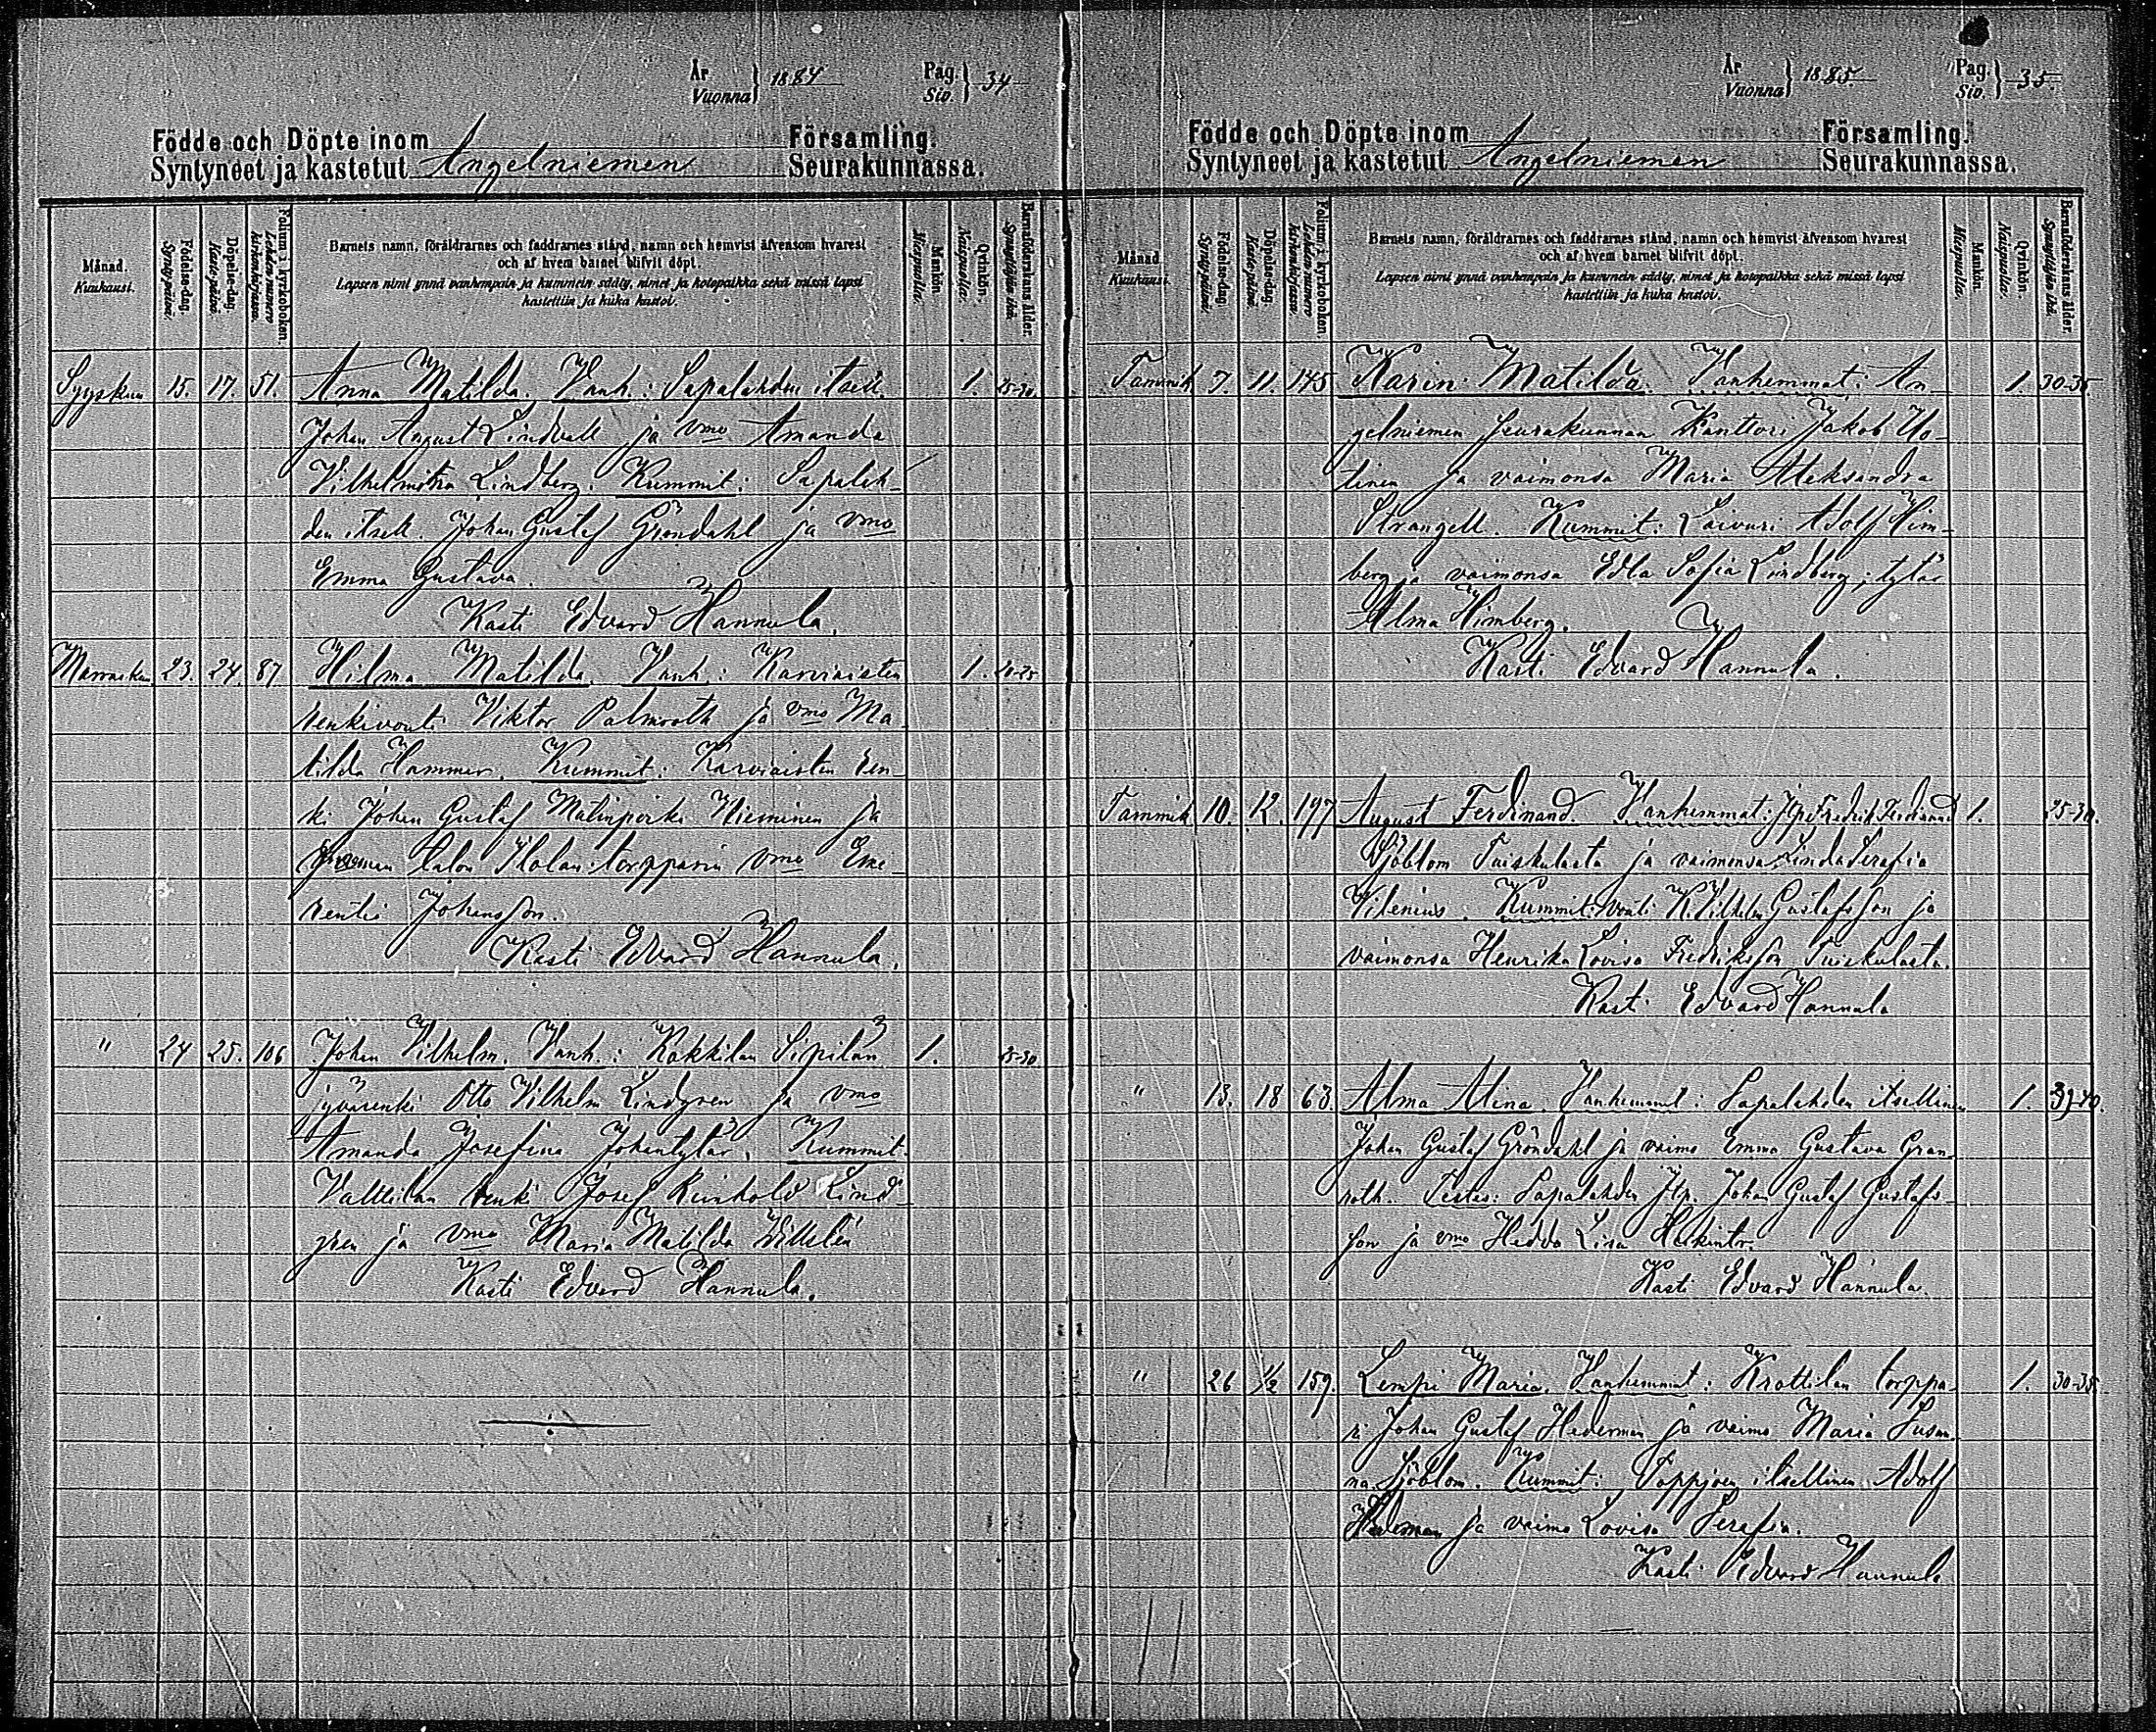 År
Vuonna } 1884
Pag.
Siv. } 34
Födde och Döpte inom Församling.
Syntyneet ja kastetut Angelniemen Seurakunnassa.
Månad. Kuukausi.
Födelse-dag. Syntypäivä.
Döpelse-dag. Kastepäivä.
Folium i kyrkoboken. Lehden numero kirkonkirjassa.
Barnets namn, föräldrarnes och faddrarnes stånd, namn och hemvist äfvensom hvarest
och af hvem barnet blifvit döpt.
Lapsen nimi ynnä vanhempain ja kummein sääty, nimet ja kotopaikka sekä missä lapsi
kastettiin ja kuka kastoi.
Mankön. Miespuolia.
Qvinkön. Naispuolia.
Barnaföderskans ålder. Synnyttäjän ikä.
Syyskuu 15. 17. 51. Anna Matilda. Vanh: Sapalahden itsell. 1. 25-30.
Johan August Lindvall ja vmo Amanda
Vilhelmina Lindberg. Kummit: Sapalah-
den itsell. Johan Gustaf Gröndahl ja vmo
Emma Gustava.
Kasti Edvard Hannula.
Marraskuu 23. 24. 87 Hilma Matilda. Vanh: Karviaisten 1. 20-25
renkivouti Viktor Palmroth ja vmo Ma-
tilda Hammar. Kummit: Karviaisten ren-
ki Johan Gustaf Malinperki Nieminen ja
talon Ilolan torpparin vmo Eme-
rentia Johansson.
Kasti Edvard Hannula.
" 24 25. 106 Johan Vilhelm. Vanh.: Kokkilan Sipilän 1. 25-30
jyvärenki Otto Vilhelm Lindgren ja vmo
Amanda Josefina Johantytär. Kummit.
Valttilan renki Josef Reinhold Lind-
gren ja vmo Maria Matilda Villelin
Kasti Edvard Hannula.
År
Vuonna } 1885.
Pag.
Siv. } 35.
Födde och Döpte inom Församling.
Syntyneet ja kastetut Angelniemen Seurakunnassa.
Månad Kuukausi.
Födelse-dag. Syntypäivä.
Döpelse-dag. Kastepäivä.
Folium i kyrkoboken. Lehden numero kirkonkirjassa.
Barnets namn, föräldrarnes och faddrarnes stånd, namn och hemvist äfvensom hvarest
och af hvem barnet blifvit döpt.
Lapsen nimi ynnä vanhempain ja kummein sääty, nimet ja kotopaikka sekä missä lapsi
kastettiin ja kuka kastoi.
Mankön. Miespuolia.
Qvinkön. Naispuolia.
Barnaföderskans ålder. Synnyttäjän ikä.
Tammik 7. 11. 145 Karin Matilda. Vanhemmat: An- 1. 30-35.
gelniemen seurakunnan Kanttori Jakob Uo-
tinen ja vaimonsa Maria Aleksandra
Strangell. Kummit: Laivuri Adolf Him-
berg ja vaimonsa Edla Sofia Lindberg; tytär
Alma Himberg.
Kasti Edvard Hannula.
Tammik 10. 12. 197 August Ferdinand. Vanhemmat: Itp. Fredrik Ferdinand 1. 25-30.
Sjöblom Tuiskulasta ja vaimonsa Linda Serafia
Vilenius. Kummit: vouti K. Vilhelm Gustafsson ja
vaimonsa Henrika Lovisa Fredriksson Tuiskulasta.
Kasti Edvard Hannula
" 13. 18 63. Alma Alina. Vanhemmat: Sapalahden itsellinen 1. 39-40.
Johan Gustaf Gröndahl ja vaimo Emma Gustava Gran-
roth. Testes: Sapalahden Itp. Johan Gustaf Gustafs-
son ja vmo Hedda Lisa Heikintr.
Kasti Edvard Hannula.
" 26 1/2 159. Lempi Maria. Vanhemmat: Krottilan torppa- 1. 30-35
ri Johan Gustaf Hederman ja vaimo Maria Susan-
na Sjöblom. Kummit: Toppjoen itsellinen Adolf
Hederman ja vaimo Lovisa Serafia.
Kasti Edvard Hannula